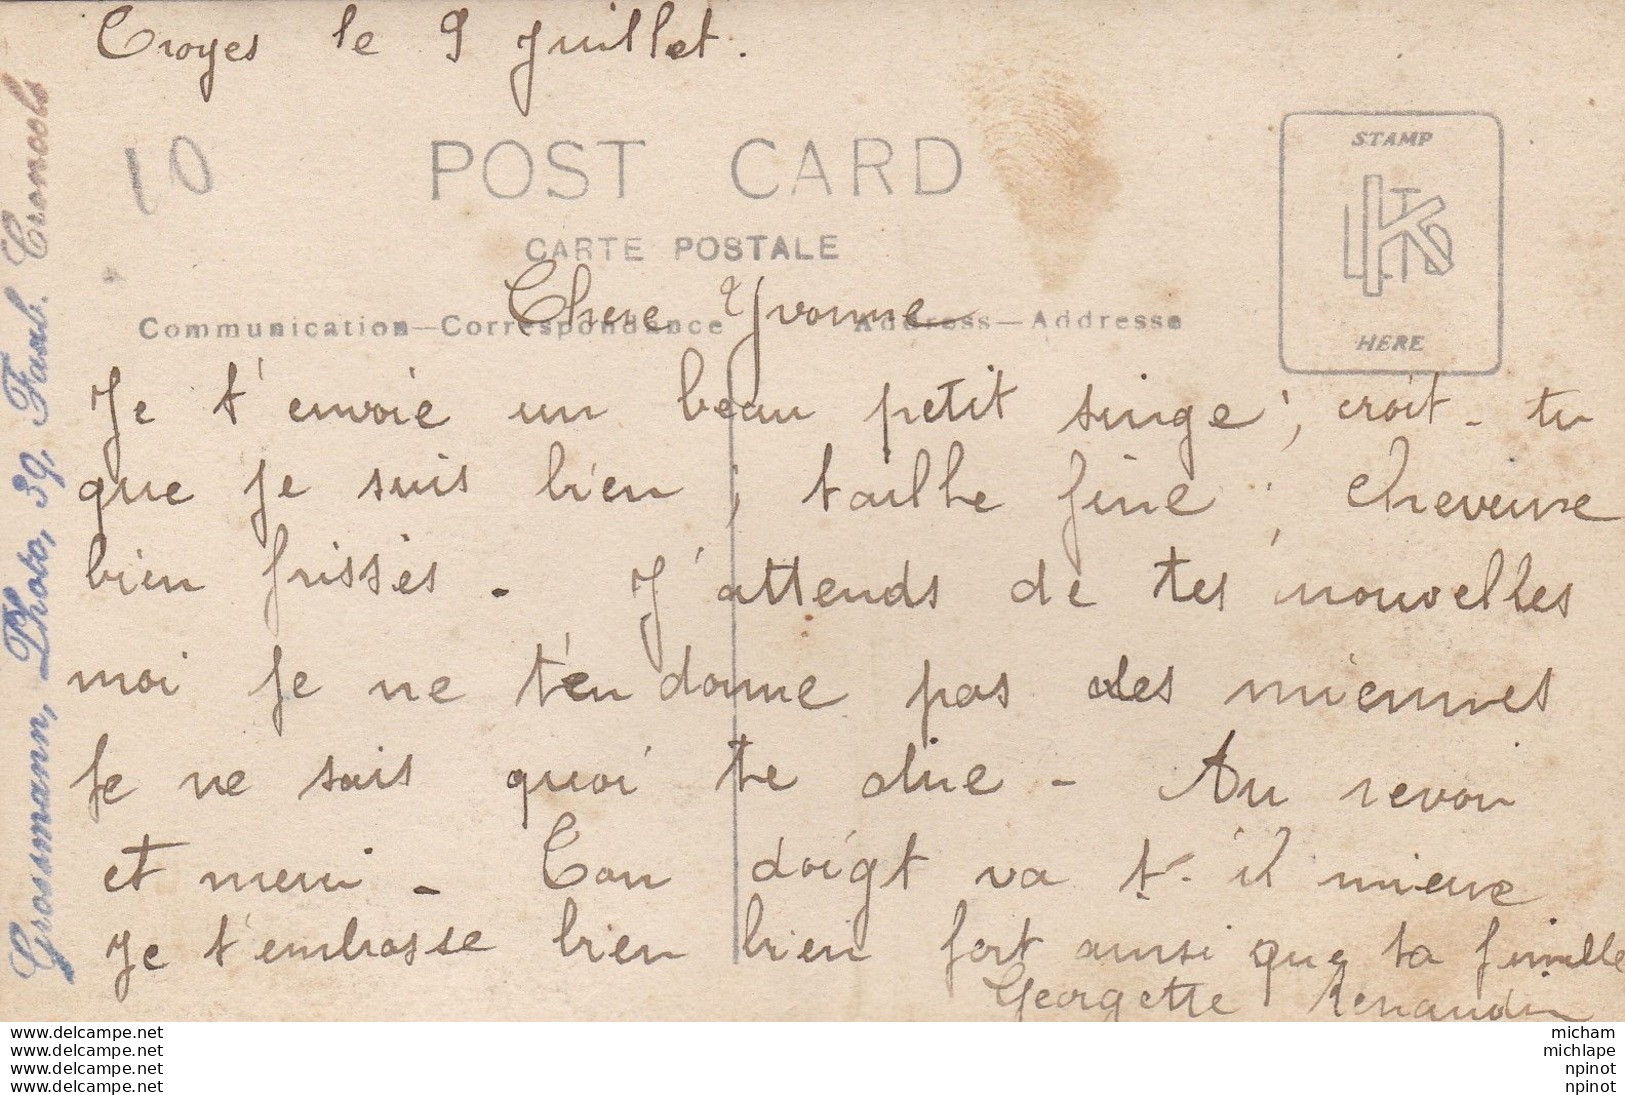 Troyes le 9 Juillet.
10
POST CARD
CARTE POSTALE
STAMP
HERE
Communication—Correspondance
Address—Addresse
Chere Yvonne
Je t'envoie un beau petit singe ; croit-tu
que je suis bien ; taille fine ; cheveuxe
bien frissés - J'attends de tes nouvelles
moi je ne t'en donne pas des miennes
Je ne sais quoi te dire - Au revoir
et merci - Ton doigt va t-il mieux
Je t'embrasse bien bien fort ainsi que ta famille
Georgette Renaudin
Grossmann, Photo, 39, Faub. Croncels
www.delcampe.net
www.delcampe.net
www.delcampe.net
www.delcampe.net
micham
michlape
npinot
npinot